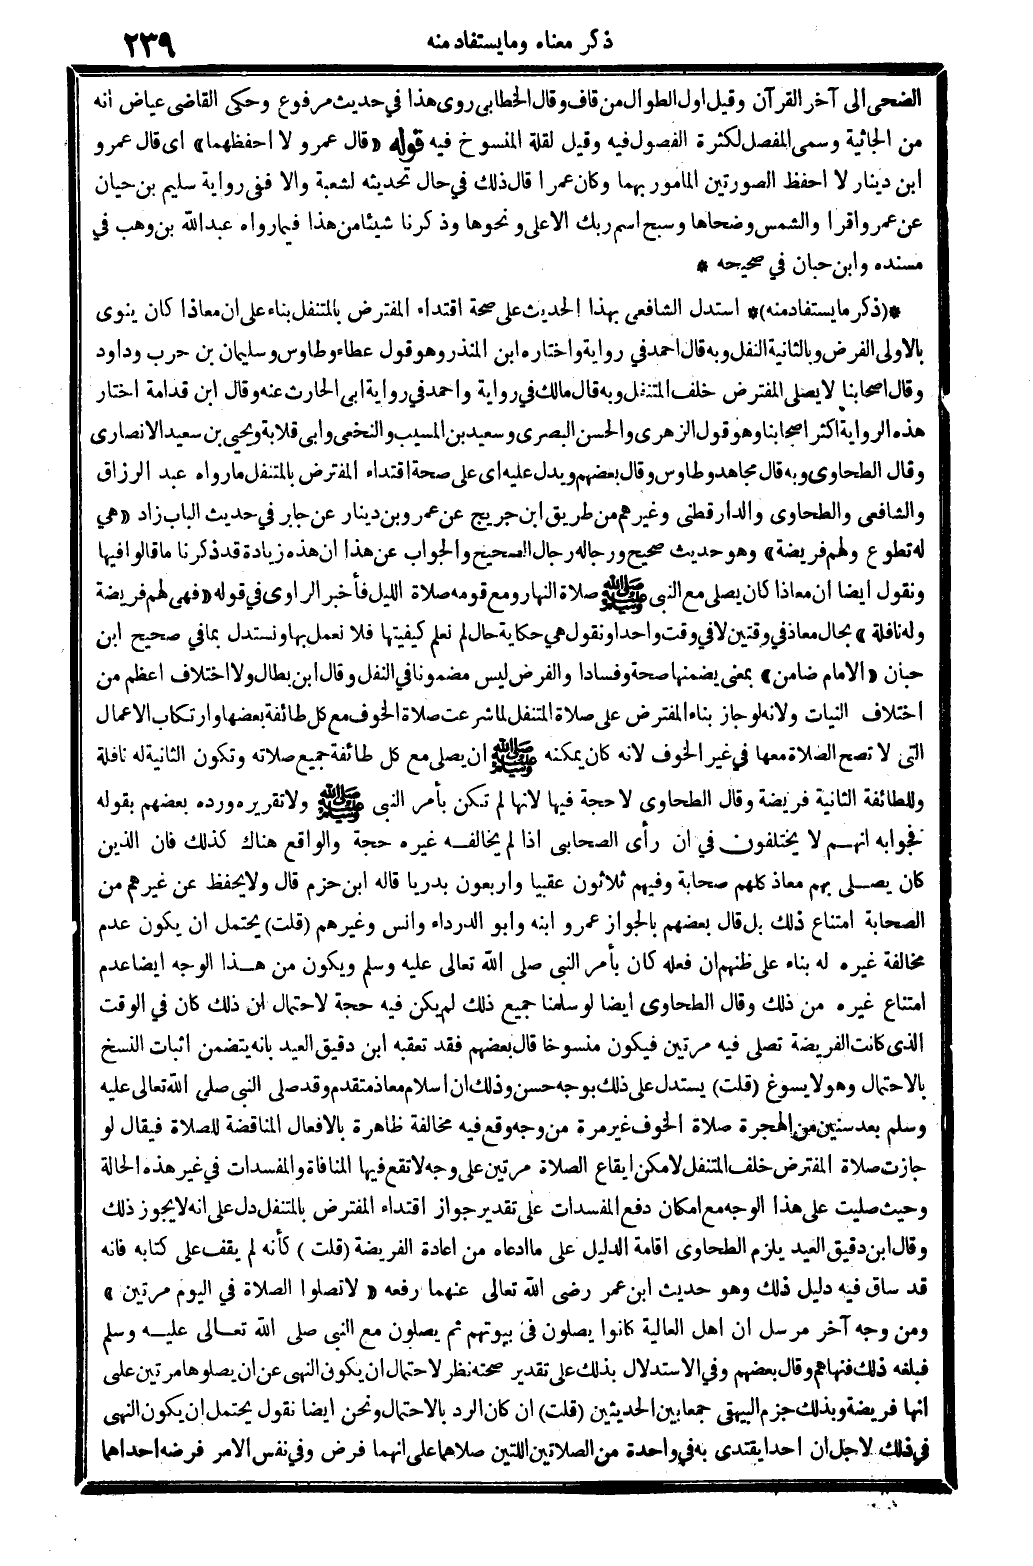 ذكر معناه ومايستفاد منه ٢٣٩
الضحى الى آخر القرآن وقيل اول الطوال من قاف وقال الخطابى روى هذا في حديث مرفوع وحكى القاضى عياض انه
من الجاثية وسمى المفصل لكثرة الفصول فيه وقيل لقلة المنسوخ فيه قوله «قال عمرو لا احفظهما» اى قال عمرو
ابن دينار لا احفظ الصورتين المأمور بهما وكان عمرا قال ذلك في حال تحديثه لشعبة والا ففى رواية سليم بن حيان
عن عمرو اقرا والشمس وضحاها وسبح اسم ربك الاعلى ونحوها وذكرنا شيئا من هذا فيما رواه عبدالله بن وهب في
مسنده وابن حبان في صحيحه *
*(ذكر مايستفاد منه)* استدل الشافعى بهذا الحديث على صحة اقتداء المفترض بالمتنفل بناء على ان معاذا كان ينوى
بالاولى الفرض وبالثانية النفل وبه قال احمد في رواية واختاره ابن المنذر وهو قول عطاء وطاوس وسليمان بن حرب وداود
وقال اصحابنا لا يصلى المفترض خلف المتنفل وبه قال مالك في رواية واحمد في رواية ابى الحارث عنه وقال ابن قدامة اختار
هذه الرواية اكثر اصحابنا وهو قول الزهرى والحسن البصرى وسعيد بن المسيب والنخعى وابى قلابة ويحيى بن سعيد الانصارى
وقال الطحاوى وبه قال مجاهد وطاوس وقال بعضهم ويدل عليه اى على صحة اقتداء المفترض بالمتنفل مارواه عبد الرزاق
والشافعى والطحاوى والدارقطنى وغيرهم من طريق ابن جريج عن عمرو بن دينار عن جابر في حديث الباب زاد «هي
له تطوع ولهم فريضة» وهو حديث صحيح ورجاله رجال الصحيح والجواب عن هذا ان هذه زيادة قد ذكرنا ما قالوا فيها
ونقول ايضا ان معاذا كان يصلى مع النبى ﷺ صلاة النهار ومع قومه صلاة الليل فأخبر الراوى في قوله «فهى لهم فريضة
وله نافلة» بحال معاذ في وقتين لا في وقت واحد او نقول هي حكاية حال لم نعلم كيفيتها فلا نعمل بها ونستدل بما في صحيح ابن
حبان «الامام ضامن» بمعنى يضمنها صحة وفسادا والفرض ليس مضمونا في النفل وقال ابن بطال ولا اختلاف اعظم من
اختلاف النيات ولانه لو جاز بناء المفترض على صلاة المتنفل لما شرعت صلاة الخوف مع كل طائفة بعضها وارتكاب الاعمال
التى لا تصح الصلاة معها في غير الخوف لانه كان يمكنه ﷺ ان يصلى مع كل طائفة جميع صلاته وتكون الثانية له نافلة
وللطائفة الثانية فريضة وقال الطحاوى لا حجة فيها لانها لم تكن بأمر النبى ﷺ ولا تقريره ورده بعضهم بقوله
فجوابه انهم لا يختلفون في ان رأى الصحابى اذا لم يخالفه غيره حجة والواقع هناك كذلك فان الذين
كان يصلى بهم معاذ كلهم صحابة وفيهم ثلاثون عقبيا واربعون بدريا قاله ابن حزم قال ولا يحفظ عن غيرهم من
الصحابة امتناع ذلك بل قال بعضهم بالجواز عمرو ابنه وابو الدرداء وانس وغيرهم (قلت) يحتمل ان يكون عدم
مخالفة غيره له بناء على ظنهم ان فعله كان بأمر النبى صلى الله تعالى عليه وسلم ويكون من هذا الوجه ايضا عدم
امتناع غيره من ذلك وقال الطحاوى ايضا لو سلمنا جميع ذلك لم يكن فيه حجة لاحتمال ان ذلك كان في الوقت
الذى كانت الفريضة تصلى فيه مرتين فيكون منسوخا قال بعضهم فقد تعقبه ابن دقيق العيد بانه يتضمن اثبات النسخ
بالاحتمال وهو لا يسوغ (قلت) يستدل على ذلك بوجه حسن وذلك ان اسلام معاذ متقدم وقد صلى النبى صلى الله تعالى عليه
وسلم بعد سنتين من الهجرة صلاة الخوف غير مرة من وجه وقع فيه مخالفة ظاهرة بالافعال المناقضة للصلاة فيقال لو
جازت صلاة المفترض خلف المتنفل لامكن ايقاع الصلاة مرتين على وجه لا تقع فيها المنافاة والمفسدات في غير هذه الحالة
وحيث صليت على هذا الوجه مع امكان دفع المفسدات على تقدير جواز اقتداء المفترض بالمتنفل دل على انه لا يجوز ذلك
وقال ابن دقيق العيد يلزم الطحاوى اقامة الدليل على ما ادعاه من اعادة الفريضة (قلت) كأنه لم يقف على كتابه فانه
قد ساق فيه دليل ذلك وهو حديث ابن عمر رضى الله تعالى عنهما رفعه «لا تصلوا الصلاة في اليوم مرتين»
ومن وجه آخر مرسل ان اهل العالية كانوا يصلون فى بيوتهم ثم يصلون مع النبى صلى الله تعالى عليه وسلم
فبلغه ذلك فنهاهم وقال بعضهم وفي الاستدلال بذلك على تقدير صحته نظر لاحتمال ان يكون النهى عن ان يصلوها مرتين على
انها فريضة وبذلك جزم البيهقى جمعا بين الحديثين (قلت) ان كان الرد بالاحتمال ونحن ايضا نقول يحتمل ان يكون النهى
في ذلك لاجل ان احدا يقتدى به في واحدة من الصلاتين اللتين صلاهما على انهما فرض وفي نفس الامر فرضه احداهما